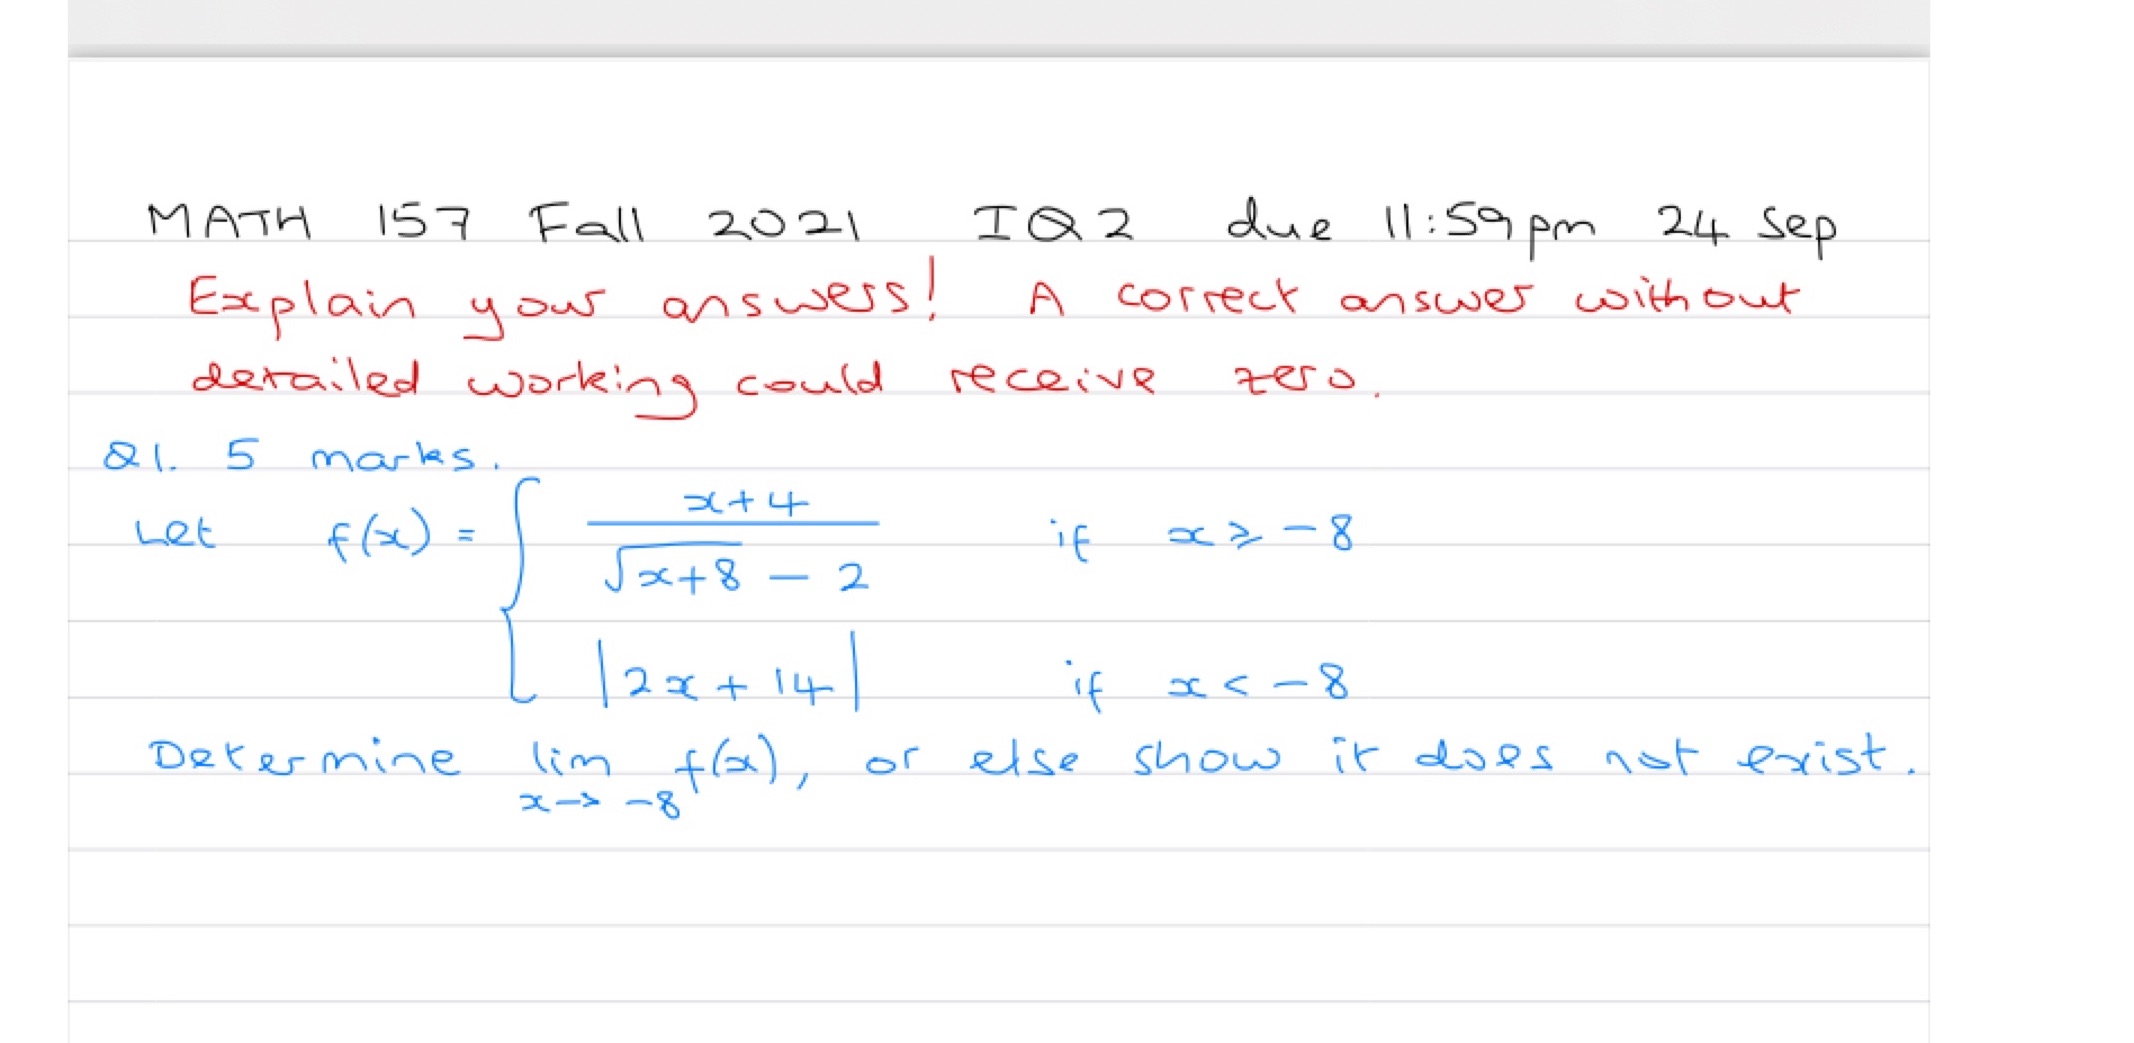 MATH 157 Fall 2021 IQ2 due 11:59pm 24 Sep
Explain your answers! A correct answer without
detailed working could receive zero.
Q1. 5 marks.
Let f(x) = { (x+4)/(√(x+8) - 2) if x ≥ -8
|2x + 14| if x < -8
Determine lim x→ -8 f(x), or else show it does not exist.